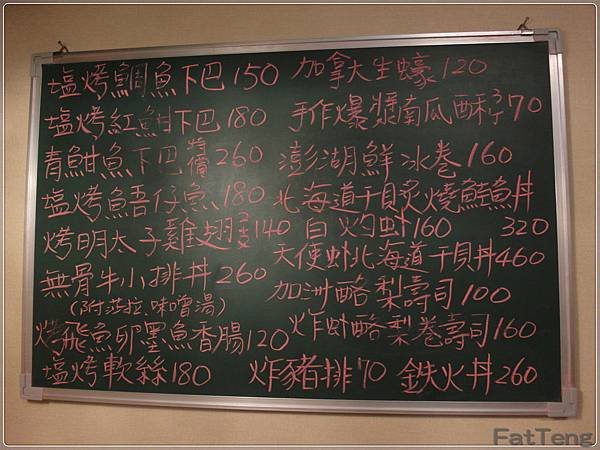 塩烤鯛魚下巴150
塩烤紅魽下巴180
青魽魚下巴特價260
塩烤魚吾仔魚180
烤明太子雞翅2支140
無骨牛小排丼260
(附莎拉.味噌湯)
烤飛魚卵墨魚香腸120
塩烤軟絲180
加拿大生蠔120
手作爆漿南瓜酥3个70
澎湖鮮冰卷160
北海道干貝炙燒鮭魚丼
320
白灼虾160
天使虾北海道干貝丼460
加洲酪梨壽司100
炸虾酪梨卷壽司160
炸豬排70
鉄火丼260
FatTeng